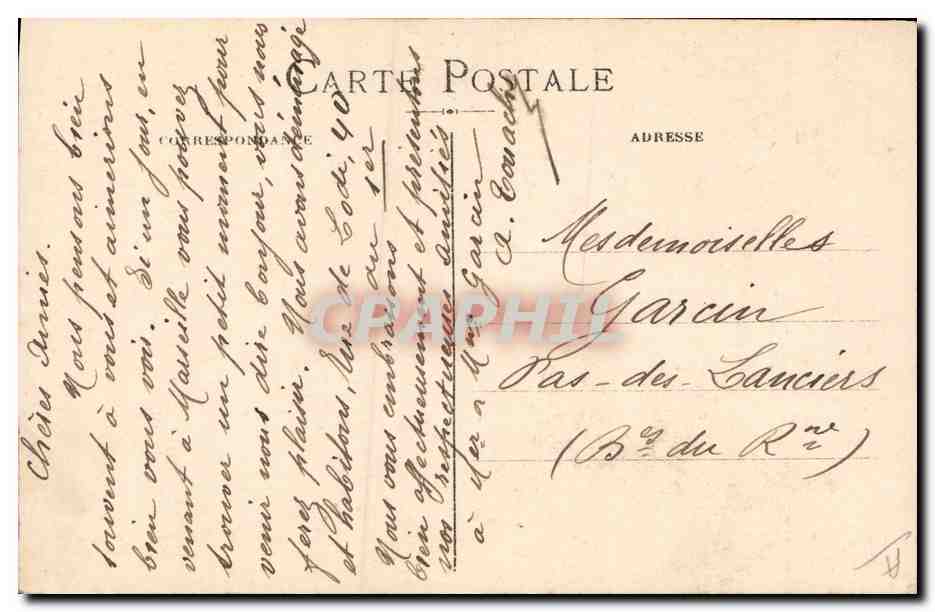 CARTE POSTALE
CORRESPONDANCE
ADRESSE
Chères Amies.
Nous pensons bien
souvent à vous et aimerions
bien vous voir. Si un jour, en
venant à Masseille vous pouvez
trouver un petit moment pour
venir nous dire bonjour, vous nous
ferez plaisir. Nous avons déménagé
et habitons, Rue de Lodi, 40
au 1er
Nous vous embrassons
bien affectueusement et présentons
nos respectueuses amitiés
à Mer & Mme Garcin
A.
Mesdemoiselles
Garcin
Pas-des-Lanciers
(Bes du Rne)
CPAPHIL